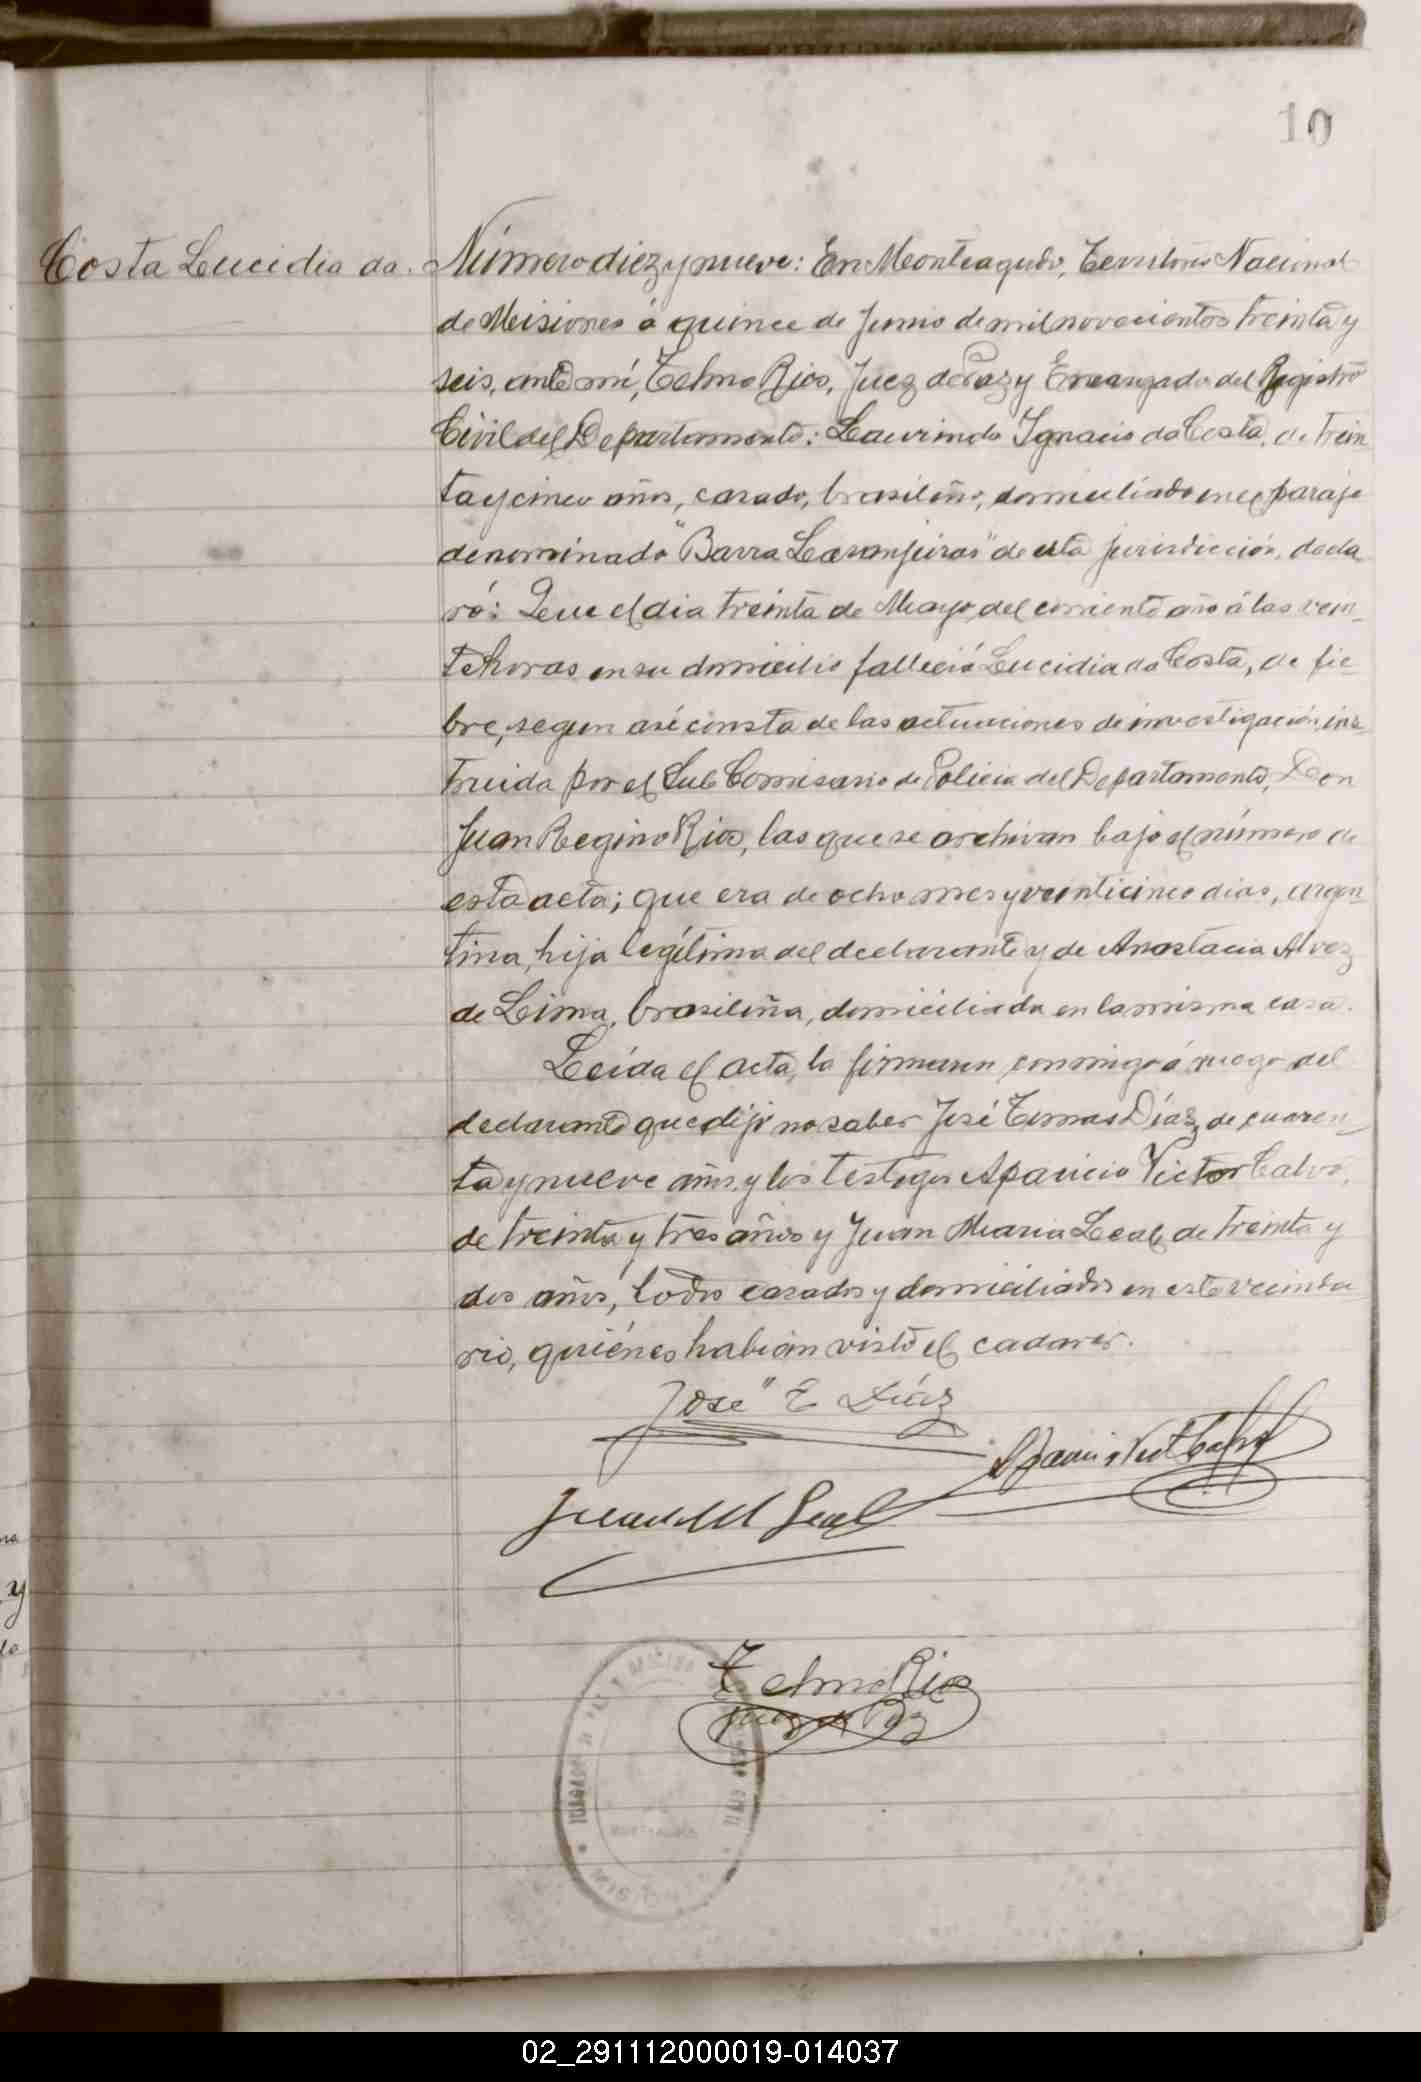 10
Costa Lucidia da.
Número diez y nueve: En Monteagudo, Territorio Nacional
de Misiones á quince de Junio de mil novecientos treinta y
seis, ante mí, Telmo Rios, Juez de Paz y Encargado del Registro
Civil del Departamento: Laurindo Ignacio da Costa, de trein
ta y cinco años, casado, brasileño, domiciliado en el paraje
denominado "Barra Laranjeiras" de esta jurisdicción, decla
ró: Que el dia treinta de Mayo, del corriente año á las vein-
te horas en su domicilio falleció Lucidia da Costa, de fie-
bre, segun asi consta de las actuaciones de investigación, ins-
truida por el Sub Comisario de Policia del Departamento, Don
Juan Regino Rios, las que se archivan bajo el número de
esta acta; que era de ocho mes y veinticinco dias, argen-
tina, hija legítima del declarante y de Anastacia Alvez
de Lima, brasileña, domiciliada en la misma casa.
Leída el acta, la firmaron conmigo á ruego del
declarante que dijo no saber José Tomas Díaz, de cuaren-
ta y nueve años, y los testigos Aparicio Victor Calvo,
de treinta y tres años y Juan Maria Leal, de treinta y
dos años, todos casados y domiciliados en este vecinda
rio, quiénes habian visto el cadaver.
José T Díaz
Aparicio Vict Calvo
Juan M Leal
Telmo Rios
Juez de Paz
JUZGADO DE PAZ
02_291112000019-014037